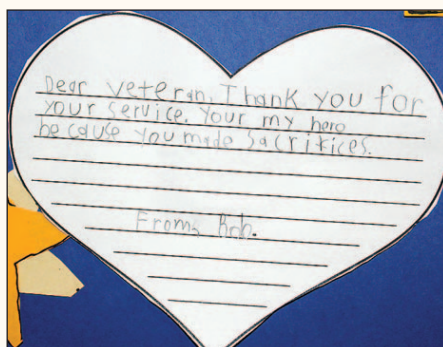 Dear veteran, Thank you for
your service. Your my hero
because you made sacrifices.
From, Rob.